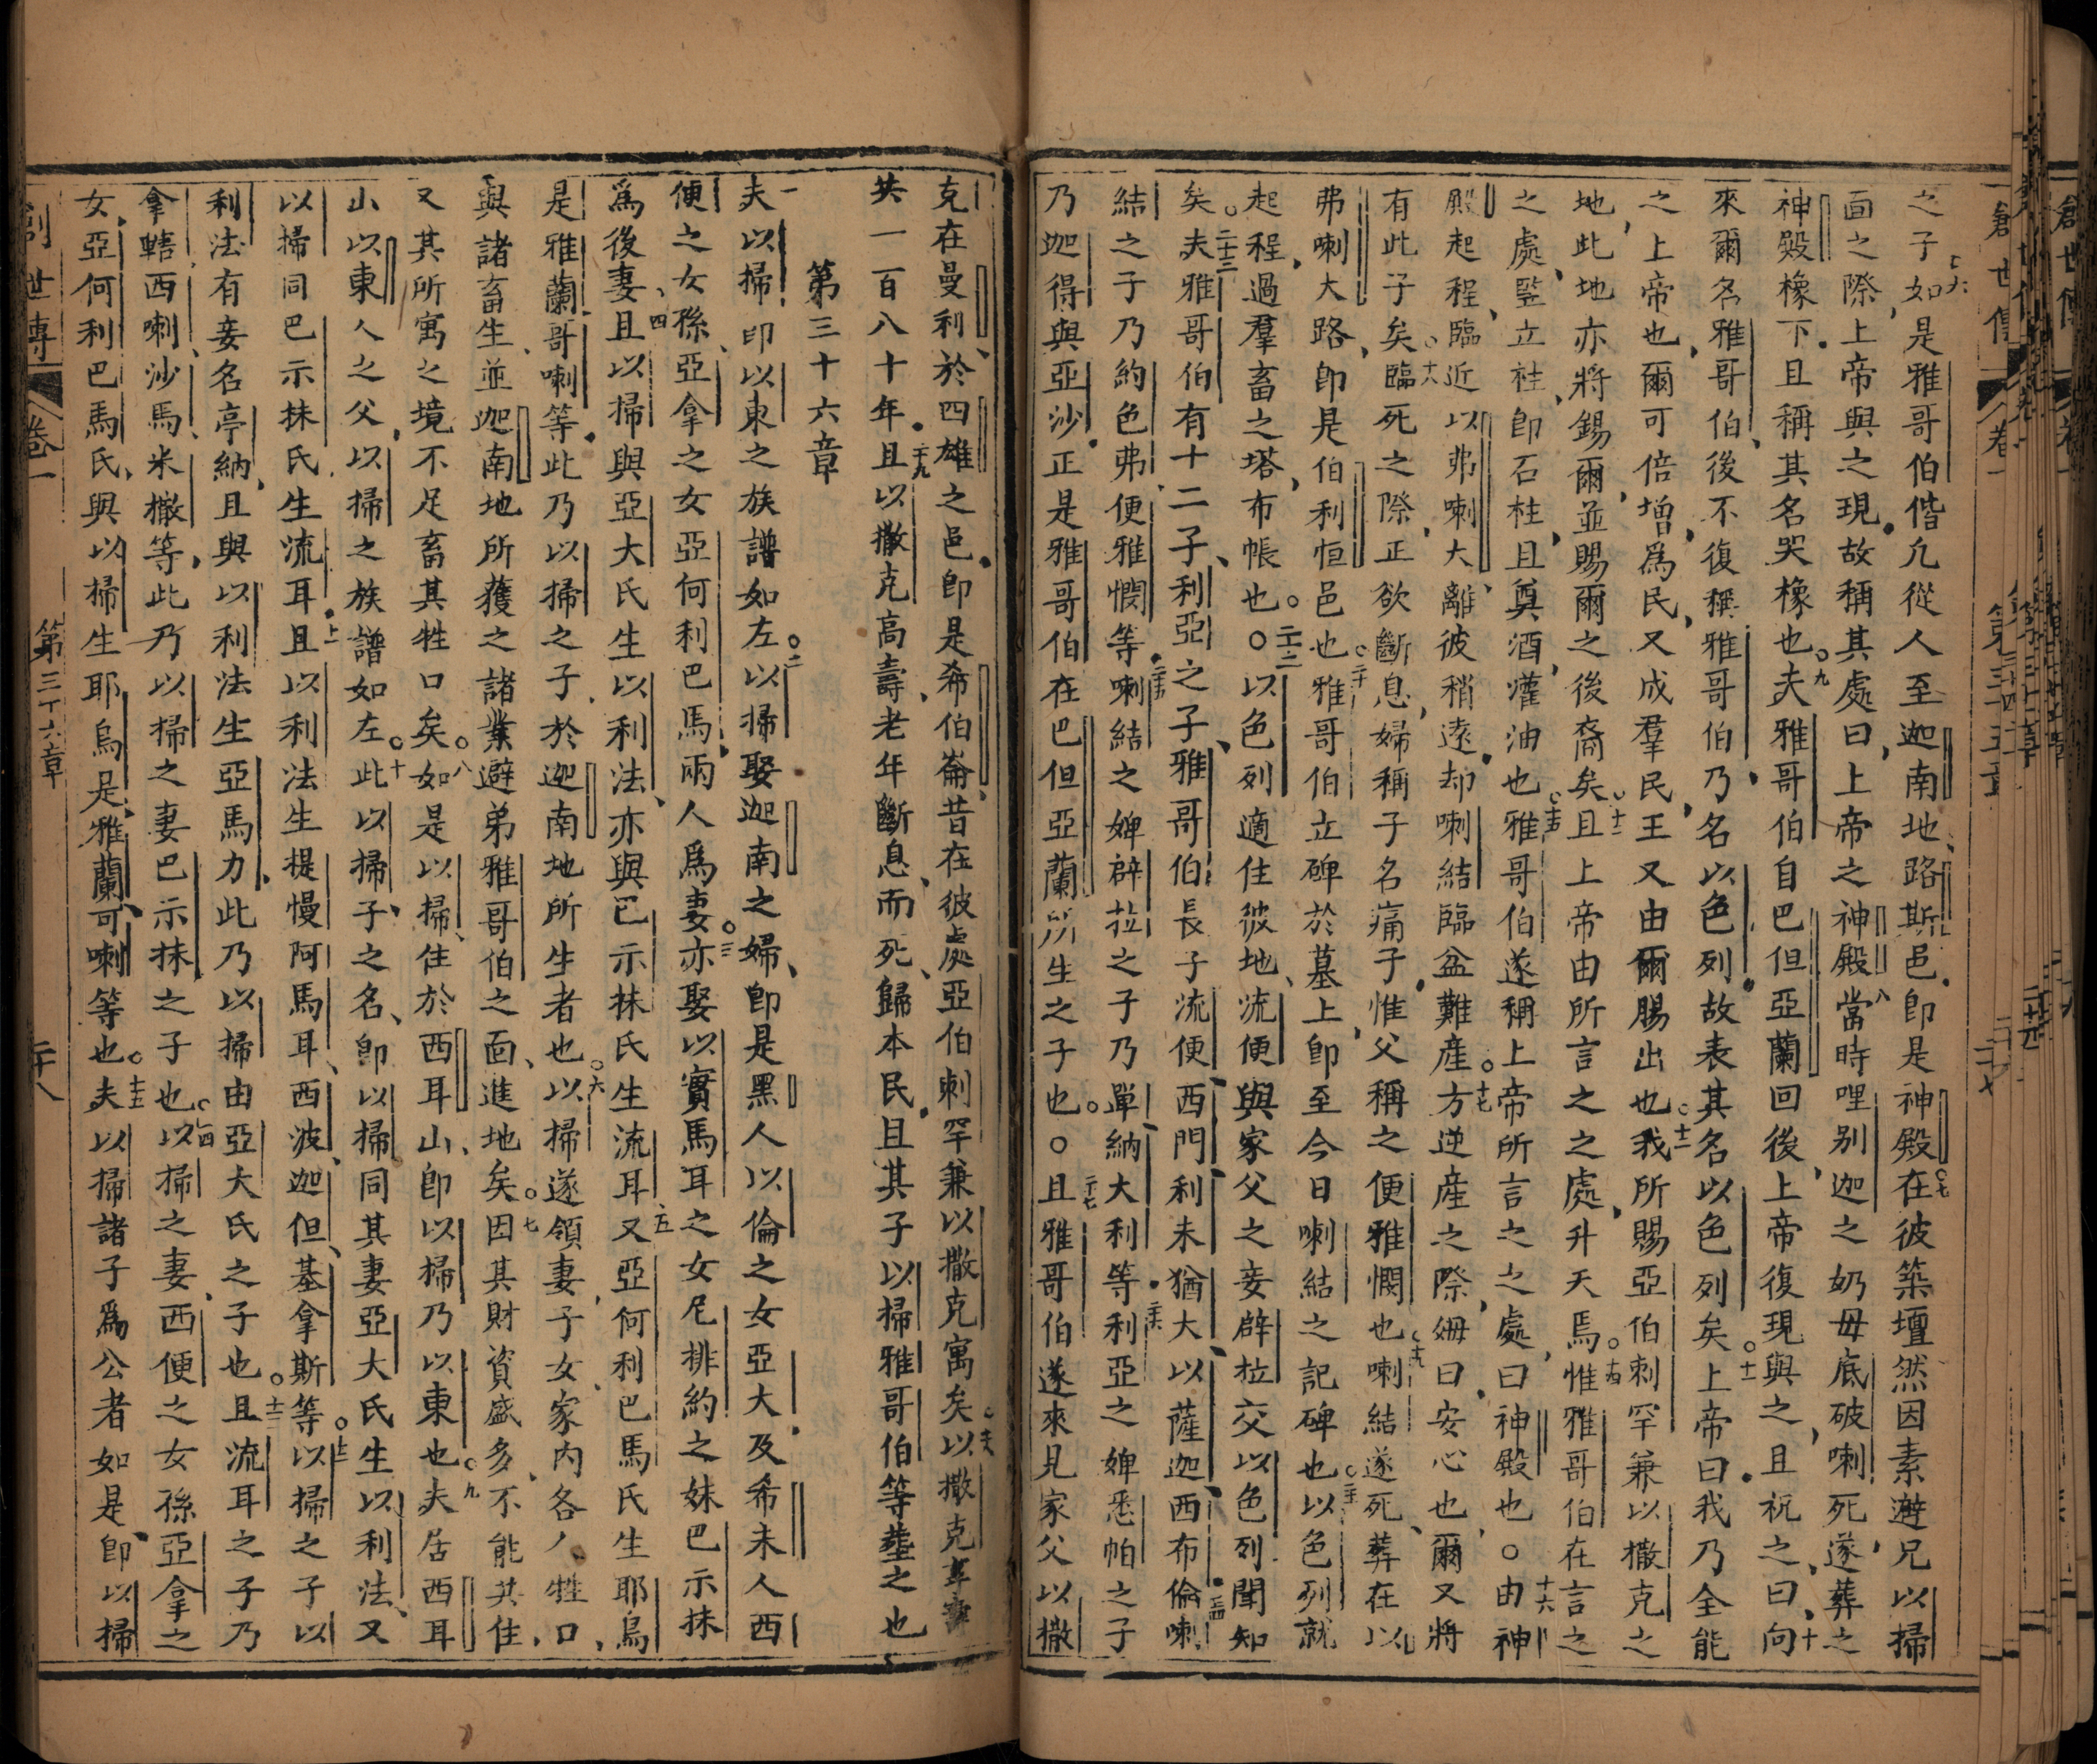 之子○六如是雅哥伯偕凢從人至迦南地路斯邑卽是神殿○七在彼築壇然因素遊兄以掃
面之際上帝與之現故稱其處曰上帝之神殿八當時哩別迦之奶毋底破喇死遂葬之
神殿橡下且稱其名哭橡也○九夫雅哥伯自巴但亞蘭回後上帝復現與之且祝之曰○十向
來爾名雅哥伯後不復稱雅哥伯乃名以色列故表其名以色列矣○十一上帝曰我乃全能
之上帝也爾可倍增爲民又成羣民王又由爾賜出也○十二我所賜亞伯剌罕兼以撒克之
地此地亦將錫爾並賜爾之後裔矣○十三且上帝由所言之之處升天焉○十四惟雅哥伯在言之
之處竪立柱卽石柱且奠酒灌油也○十五雅哥伯遂稱上帝所言之之處曰神殿也○十六由神
殿起程臨近以弗喇大離彼稍遠却喇結臨盆難產○十七方逆產之際姆曰安心也爾又將
有此子矣○十八臨死之際正欲斷息婦稱子名痛子惟父稱之便雅憫也○十九喇結遂死葬在以
弗喇大路卽是伯利恒邑也○二十雅哥伯立碑於墓上卽至今日喇結之記碑也○二十一以色列就
起程過羣畜之塔布帳也○二十二以色列適住彼地流便與家父之妾辟拉交以色列聞知
矣○二十三夫雅哥伯有十二子利亞之子雅哥伯長子流便西門利未猶大以薩迦西布倫二十四喇
結之子乃約色弗便雅憫等二十五喇結之婢辟拉之子乃單納大利等二十六利亞之婢悉帕之子
乃迦得與亞沙正是雅哥伯在巴但亞蘭所生之子也○二十七且雅哥伯遂來見家父以撒
克在曼利於四雄之邑卽是希伯崙昔在彼處亞伯剌罕兼以撒克寓矣○二十八以撒克享壽
共一百八十年二十九且以撒克高壽老年斷息而死歸本民且其子以掃雅哥伯等塟之也
第三十六章
一夫以掃卽以東之族譜如左○二以掃娶迦南之婦卽是黑人以倫之女亞大及希未人西
便之女孫亞拿之女亞何利巴馬兩人爲妻○三亦娶以實馬耳之女尼排約之妹巴示抹
爲後妻四且以掃與亞大氏生以利法亦與巴示抹氏生流耳五又亞何利巴馬氏生耶烏
是雅蘭哥喇等此乃以掃之子於迦南地所生者也○六以掃遂領妻子女家內各人牲口
與諸畜生並迦南地所獲之諸業避弟雅哥伯之面進地矣○七因其財資盛多不能共住
又其所寓之境不足畜其牲口矣○八如是以掃住於西耳山卽以掃乃以東也○九夫居西耳
山以東人之父以掃之族譜如左○十此以掃子之名卽以掃同其妻亞大氏生以利法又
以掃同巴示抹氏生流耳十一且以利法生提慢阿馬耳西波迦但基拿斯等○十二以掃之子以
利法有妾名亭納且與以利法生亞馬力此乃以掃由亞大氏之子也○十三且流耳之子乃
拿轄西喇沙馬米撒等此乃以掃之妻巴示抹之子也○十四以掃之妻西便之女孫亞拿之
女亞何利巴馬氏與以掃生耶烏是雅蘭可喇等也○十五夫以掃諸子爲公者如是卽以掃
創世傳 卷一 第三十六章 二十八
創世傳 卷一 第三十五章 二十七